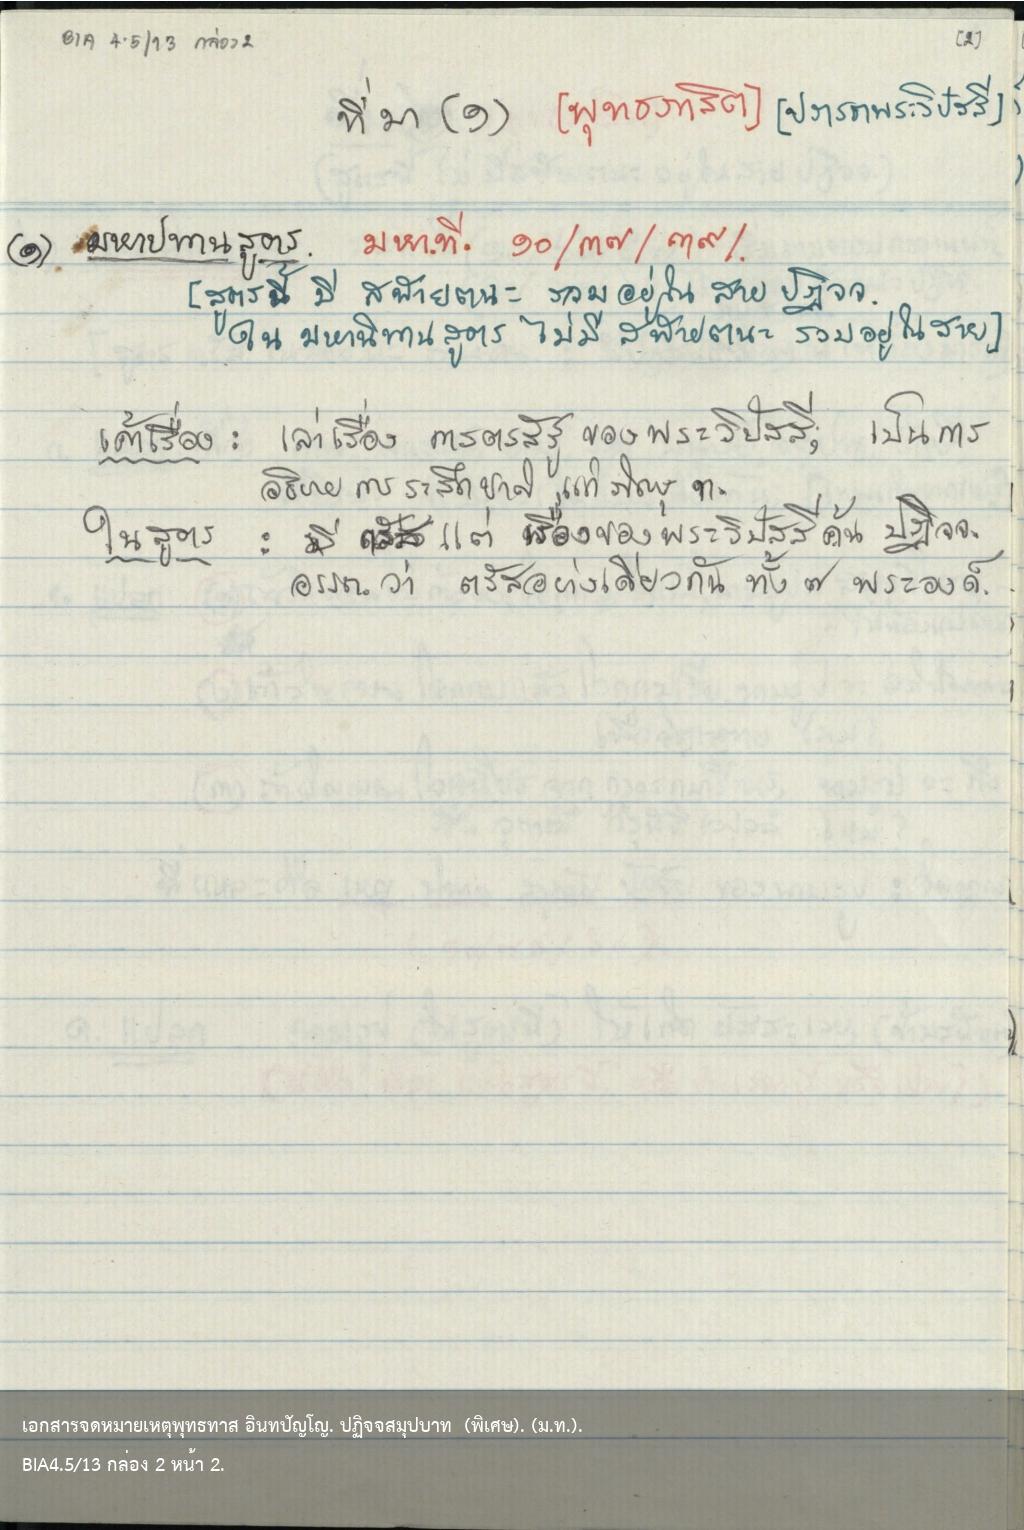 BIA 4.5/13 กล่อง 2 [2]
ที่มา (๑) [พุทธภาษิต] [ปรารภพระวิปัสสี]
(๑) มหาปทานสูตร. มหา.ที. ๑๐/๓๗/๓๙/.
[สูตรนี้ มี สฬายตนะ รวมอยู่ใน สาย ปฏิจจ.
ใน มหานิทานสูตร ไม่มี สฬายตนะ รวมอยู่ในสาย]
เค้าเรื่อง : เล่าเรื่อง การตรัสรู้ ของพระวิปัสสี; เป็นการ
อธิบาย การระลึกชาติ แก่ภิกษุ ท.
ในสูตร : มี ตรัส แต่ เรื่องของพระวิปัสสีค้น ปฏิจจ.
อรรถ.ว่า ตรัสอย่างเดียวกัน ทั้ง ๗ พระองค์.
เอกสารจดหมายเหตุพุทธทาส อินทปัญโญ. ปฏิจจสมุปบาท (พิเศษ). (ม.ท.).
BIA4.5/13 กล่อง 2 หน้า 2.